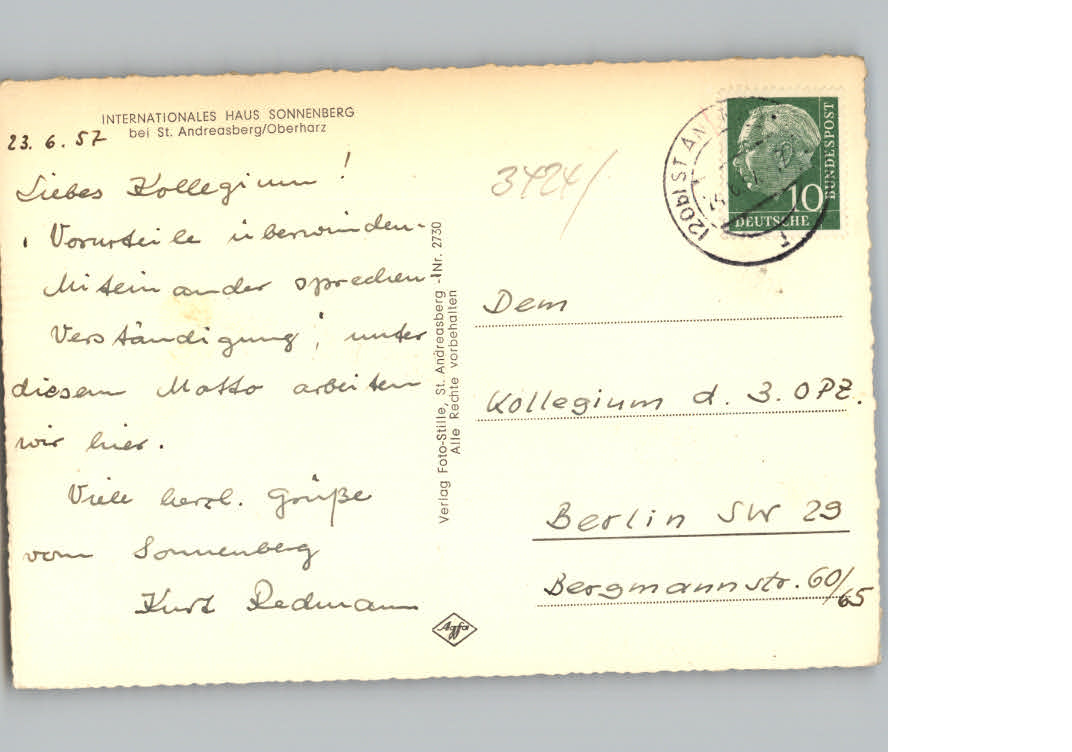 INTERNATIONALES HAUS SONNENBERG
bei St. Andreasberg/Oberharz
23. 6. 57
Liebes Kollegium!
„Vorurteile überwinden-
Miteinander sprechen-
Verständigung", unter
diesem Motto arbeiten
wir hier.
Viele herzl. Grüße
vom Sonnenberg
Kurt Redmann
Verlag Foto-Stille, St. Andreasberg - Nr. 2730
Alle Rechte vorbehalten
Agfa
3424/
(20b) ST AN
DEUTSCHE
BUNDESPOST
10
Dem
Kollegium d. 3. OPZ.
Berlin SW 29
Bergmannstr. 60/65